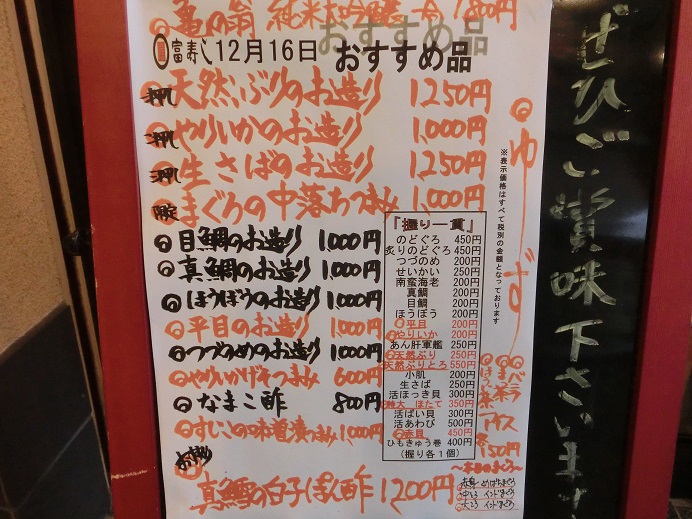 亀の翁 純米大吟醸 一合 1,800円
富寿し12月16日
おすすめ品
おすすめ品
押し 天然ぶりのお造り 1250円
押し やりいかのお造り 1,000円
押し 生さばのお造り 1250円
限定 まぐろの中落ちつまみ 1,000円
目鯛のお造り 1,000円
真鯛のお造り 1,000円
ほうぼうのお造り 1,000円
平目のお造り 1,000円
つづのめのお造り 1,000円
やりいかげそつまみ 600円
なまこ酢 800円
すじこの味噌漬つまみ 1,000円
真鱈の白子ぽん酢 1200円
『握り一貫』
のどぐろ 450円
炙りのどぐろ 450円
つづのめ 200円
せいかい 250円
南蛮海老 200円
真鯛 200円
目鯛 200円
ほうぼう 200円
平目 200円
やりいか 200円
あん肝軍艦 250円
天然ぶり 250円
天然ぶりとろ 550円
小肌 200円
生さば 250円
活ほっき貝 300円
特大 ほたて 350円
活ばい貝 300円
活あわび 500円
赤目 450円
ひもきゅう巻 400円
(握り各1個)
※表示価格はすべて税別の金額となっております
アイス
150円
〜本日のまぐろ〜
ぜひご賞味下さいませ